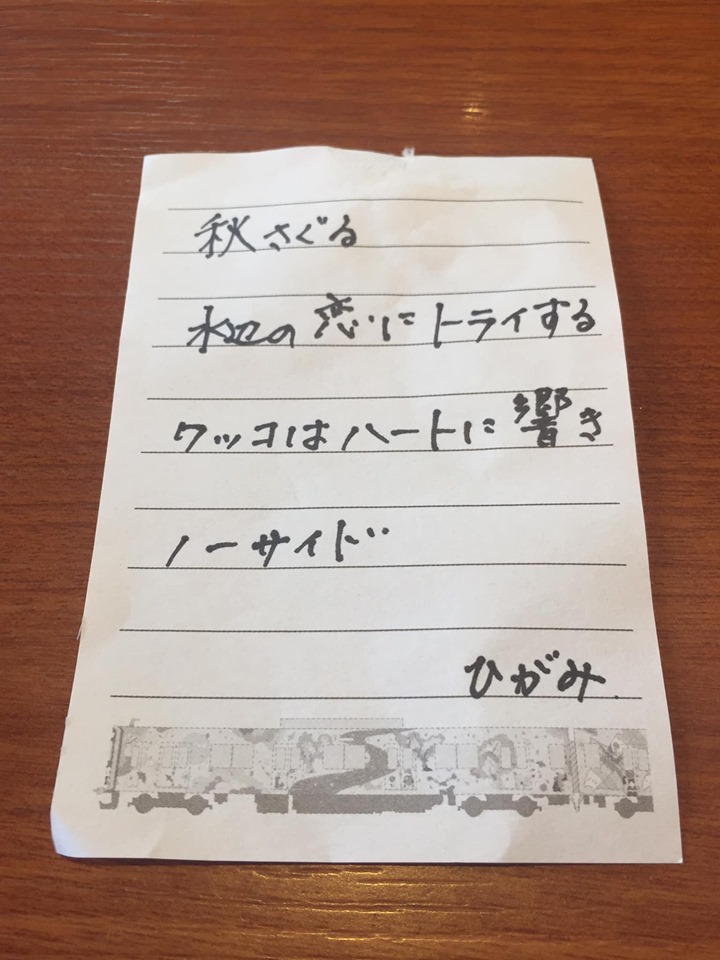 秋さぐる
水辺の恋にトライする
ワッコはハートに響き
ノーサイド
ひがみ